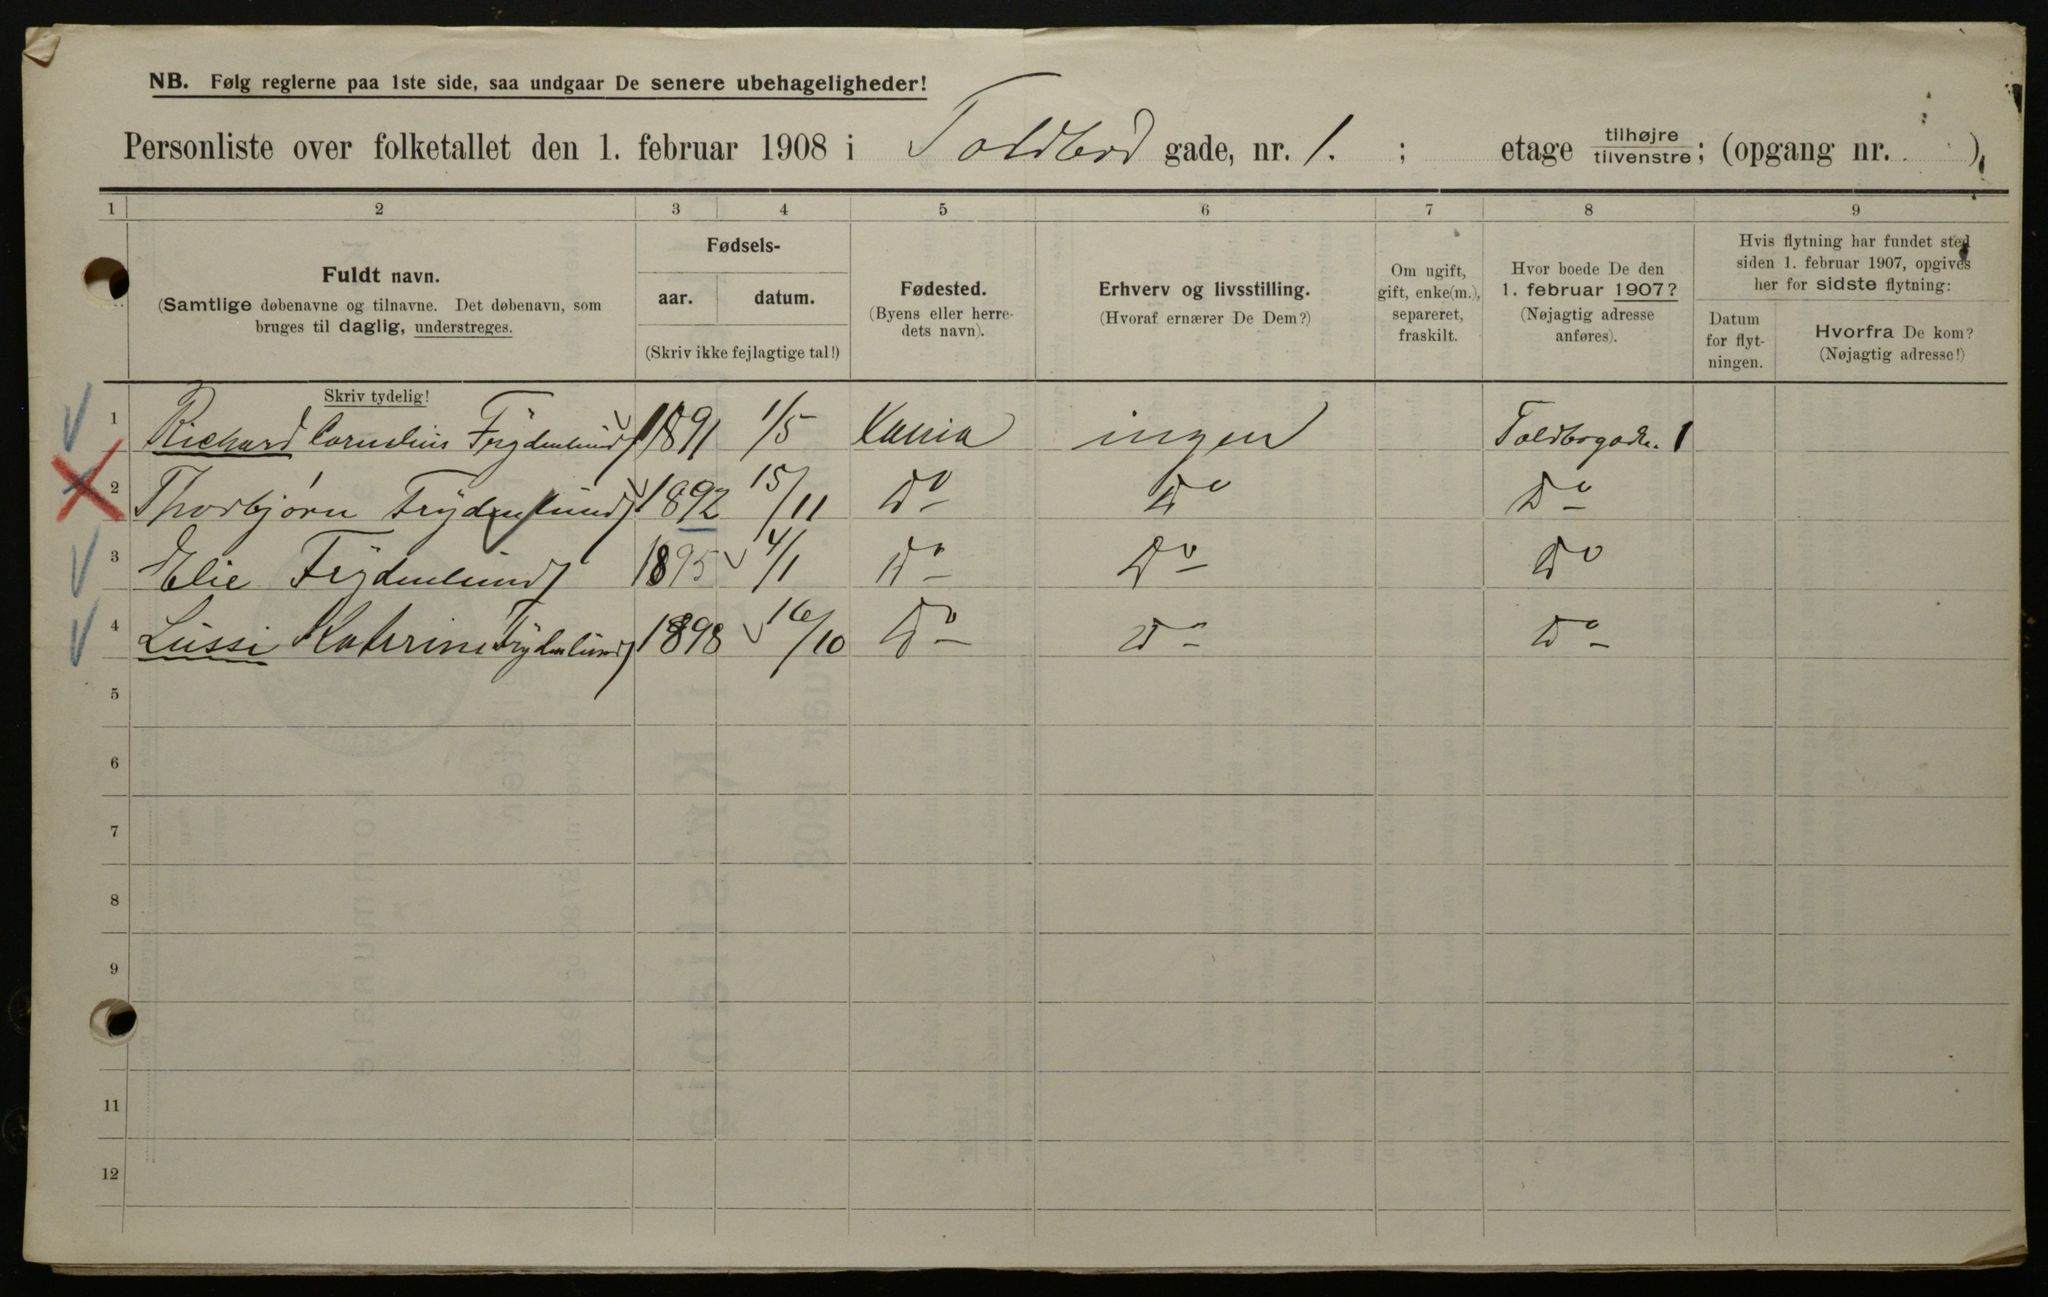 NB. Følg reglerne paa 1ste side, saa undgaar De senere ubehageligheder!
Personliste over folketallet den 1. februar 1908 i Toldbod gade, nr. 1. ; etage tilhøjre tilvenstre; (opgang nr. ).
1 2 3 4 5 6 7 8 9
Fuldt navn.
(Samtlige døbenavne og tilnavne. Det døbenavn, som
bruges til daglig, understreges.
Skriv tydelig!
Fødsels-
aar. datum.
(Skriv ikke fejlagtige tal!)
Fødested.
(Byens eller herre-
dets navn).
Erhverv og livsstilling.
(Hvoraf ernærer De Dem?)
Om ugift,
gift, enke(m.),
separeret,
fraskilt.
Hvor boede De den
1. februar 1907?
(Nøjagtig adresse
anføres).
Hvis flytning har fundet sted
siden 1. februar 1907, opgives
her for sidste flytning:
Datum
for flyt-
ningen.
Hvorfra De kom?
(Nøjagtig adresse!)
1 Richard Cornelius Frydenlund 1891 1/5 Kania ingen Toldbogadn. 1
2 Thorbjørn Frydenlund 1892 15/11 Do Do Do
3 Elie Frydenlund 1895 4/1 Do Do Do
4 Lussi Katrine Frydenlund 1898 16/10 Do Do Do
5
6
7
8
9
11
12